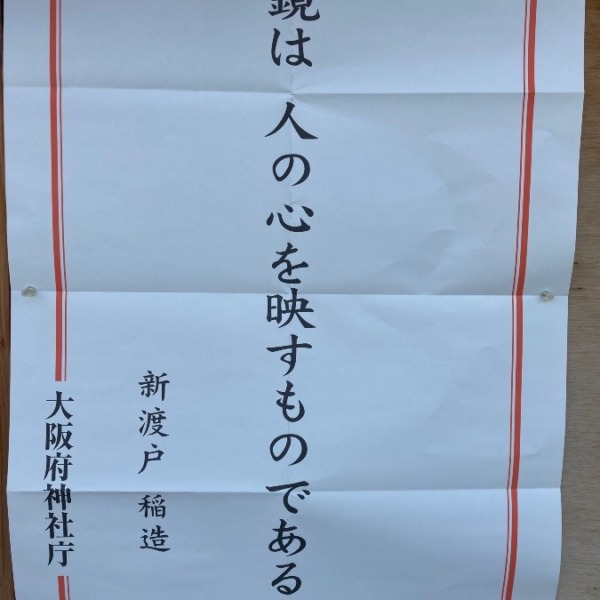 鏡は 人の心を映すものである
新渡戸 稲造
大阪府神社庁